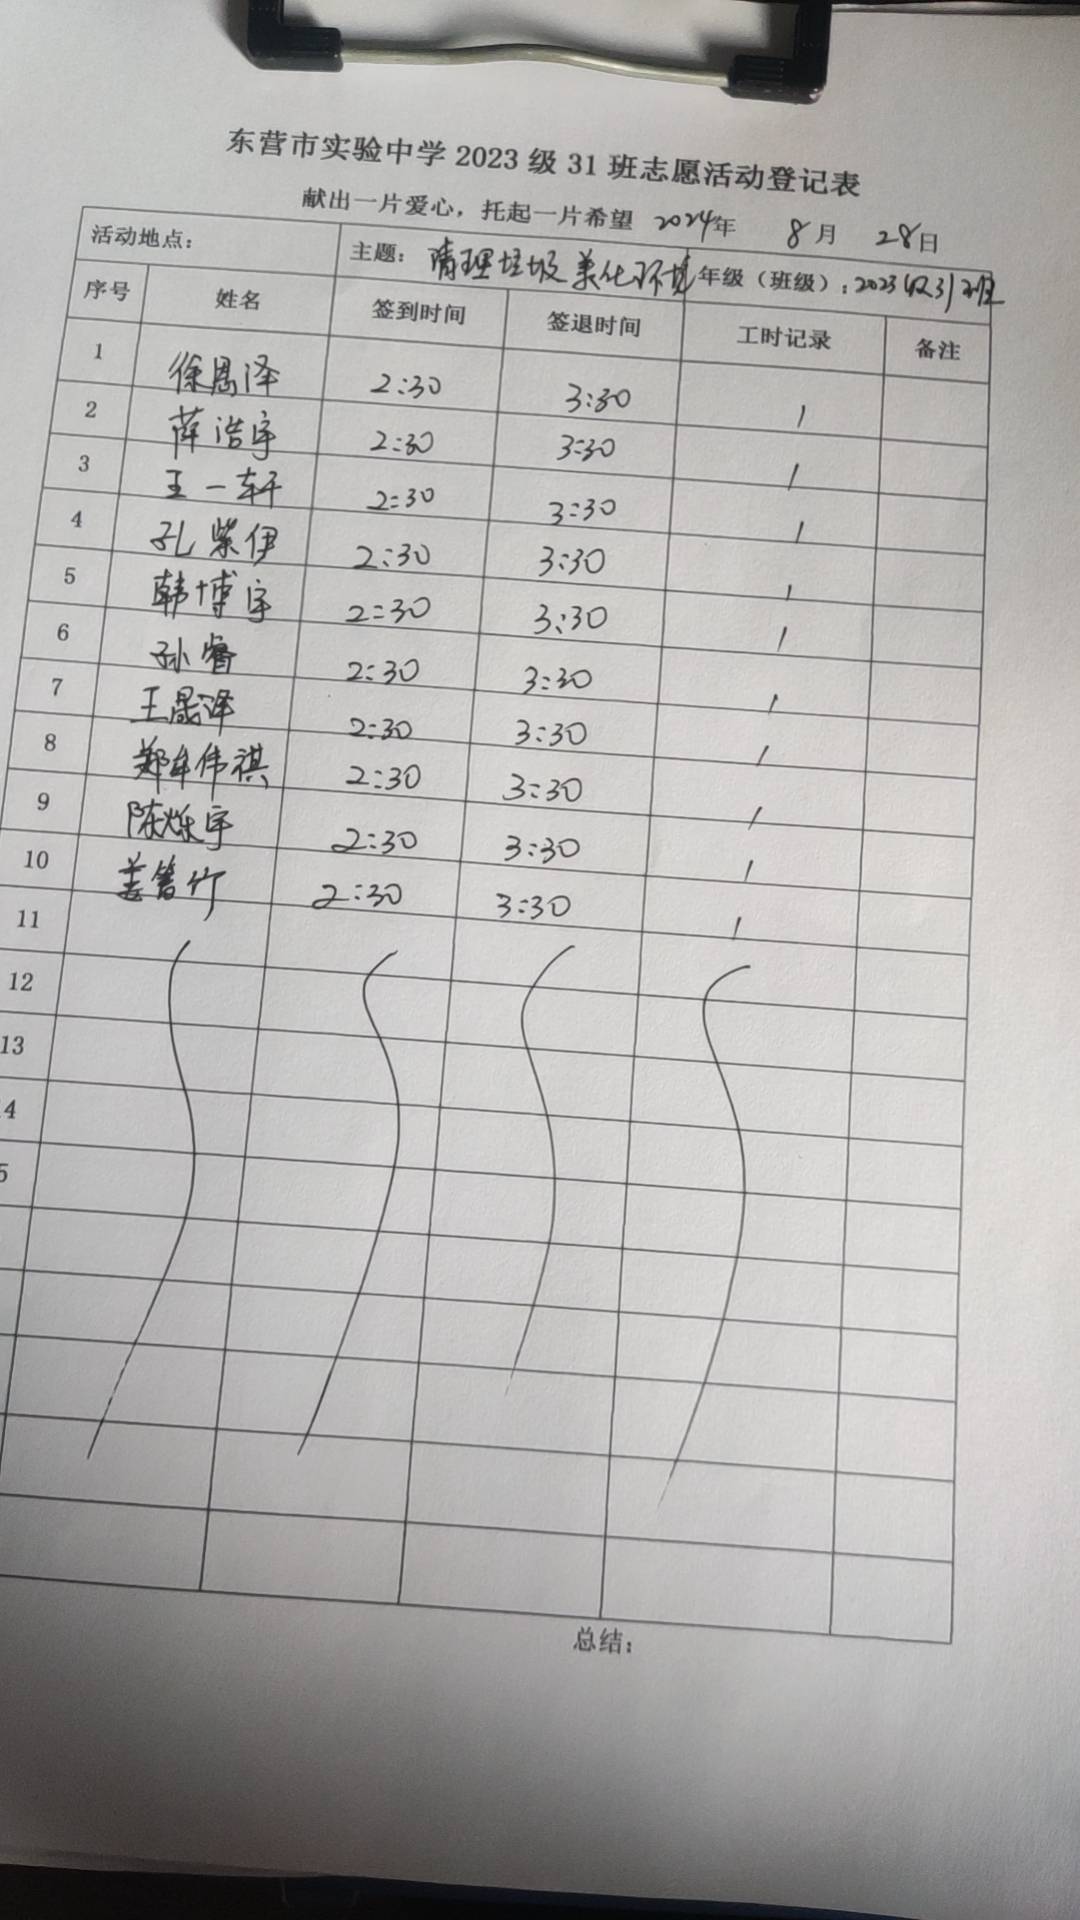 东营市实验中学 2023 级 31 班志愿活动登记表
献出一片爱心，托起一片希望 2024年 8月 28日
活动地点： 主题：清理垃圾 美化环境 年级（班级）：2023级31班
序号 姓名 签到时间 签退时间 工时记录 备注
1 徐恩泽 2:30 3:30 1
2 薛浩宇 2:30 3:30 1
3 王一轩 2:30 3:30 1
4 孔紫伊 2:30 3:30 1
5 韩博宇 2:30 3:30 1
6 孙睿 2:30 3:30 1
7 王晟泽 2:30 3:30 1
8 郑牟伟祺 2:30 3:30 1
9 陈烁宇 2:30 3:30 1
10 2:30 3:30 1
11
12
13
4
5
总结：